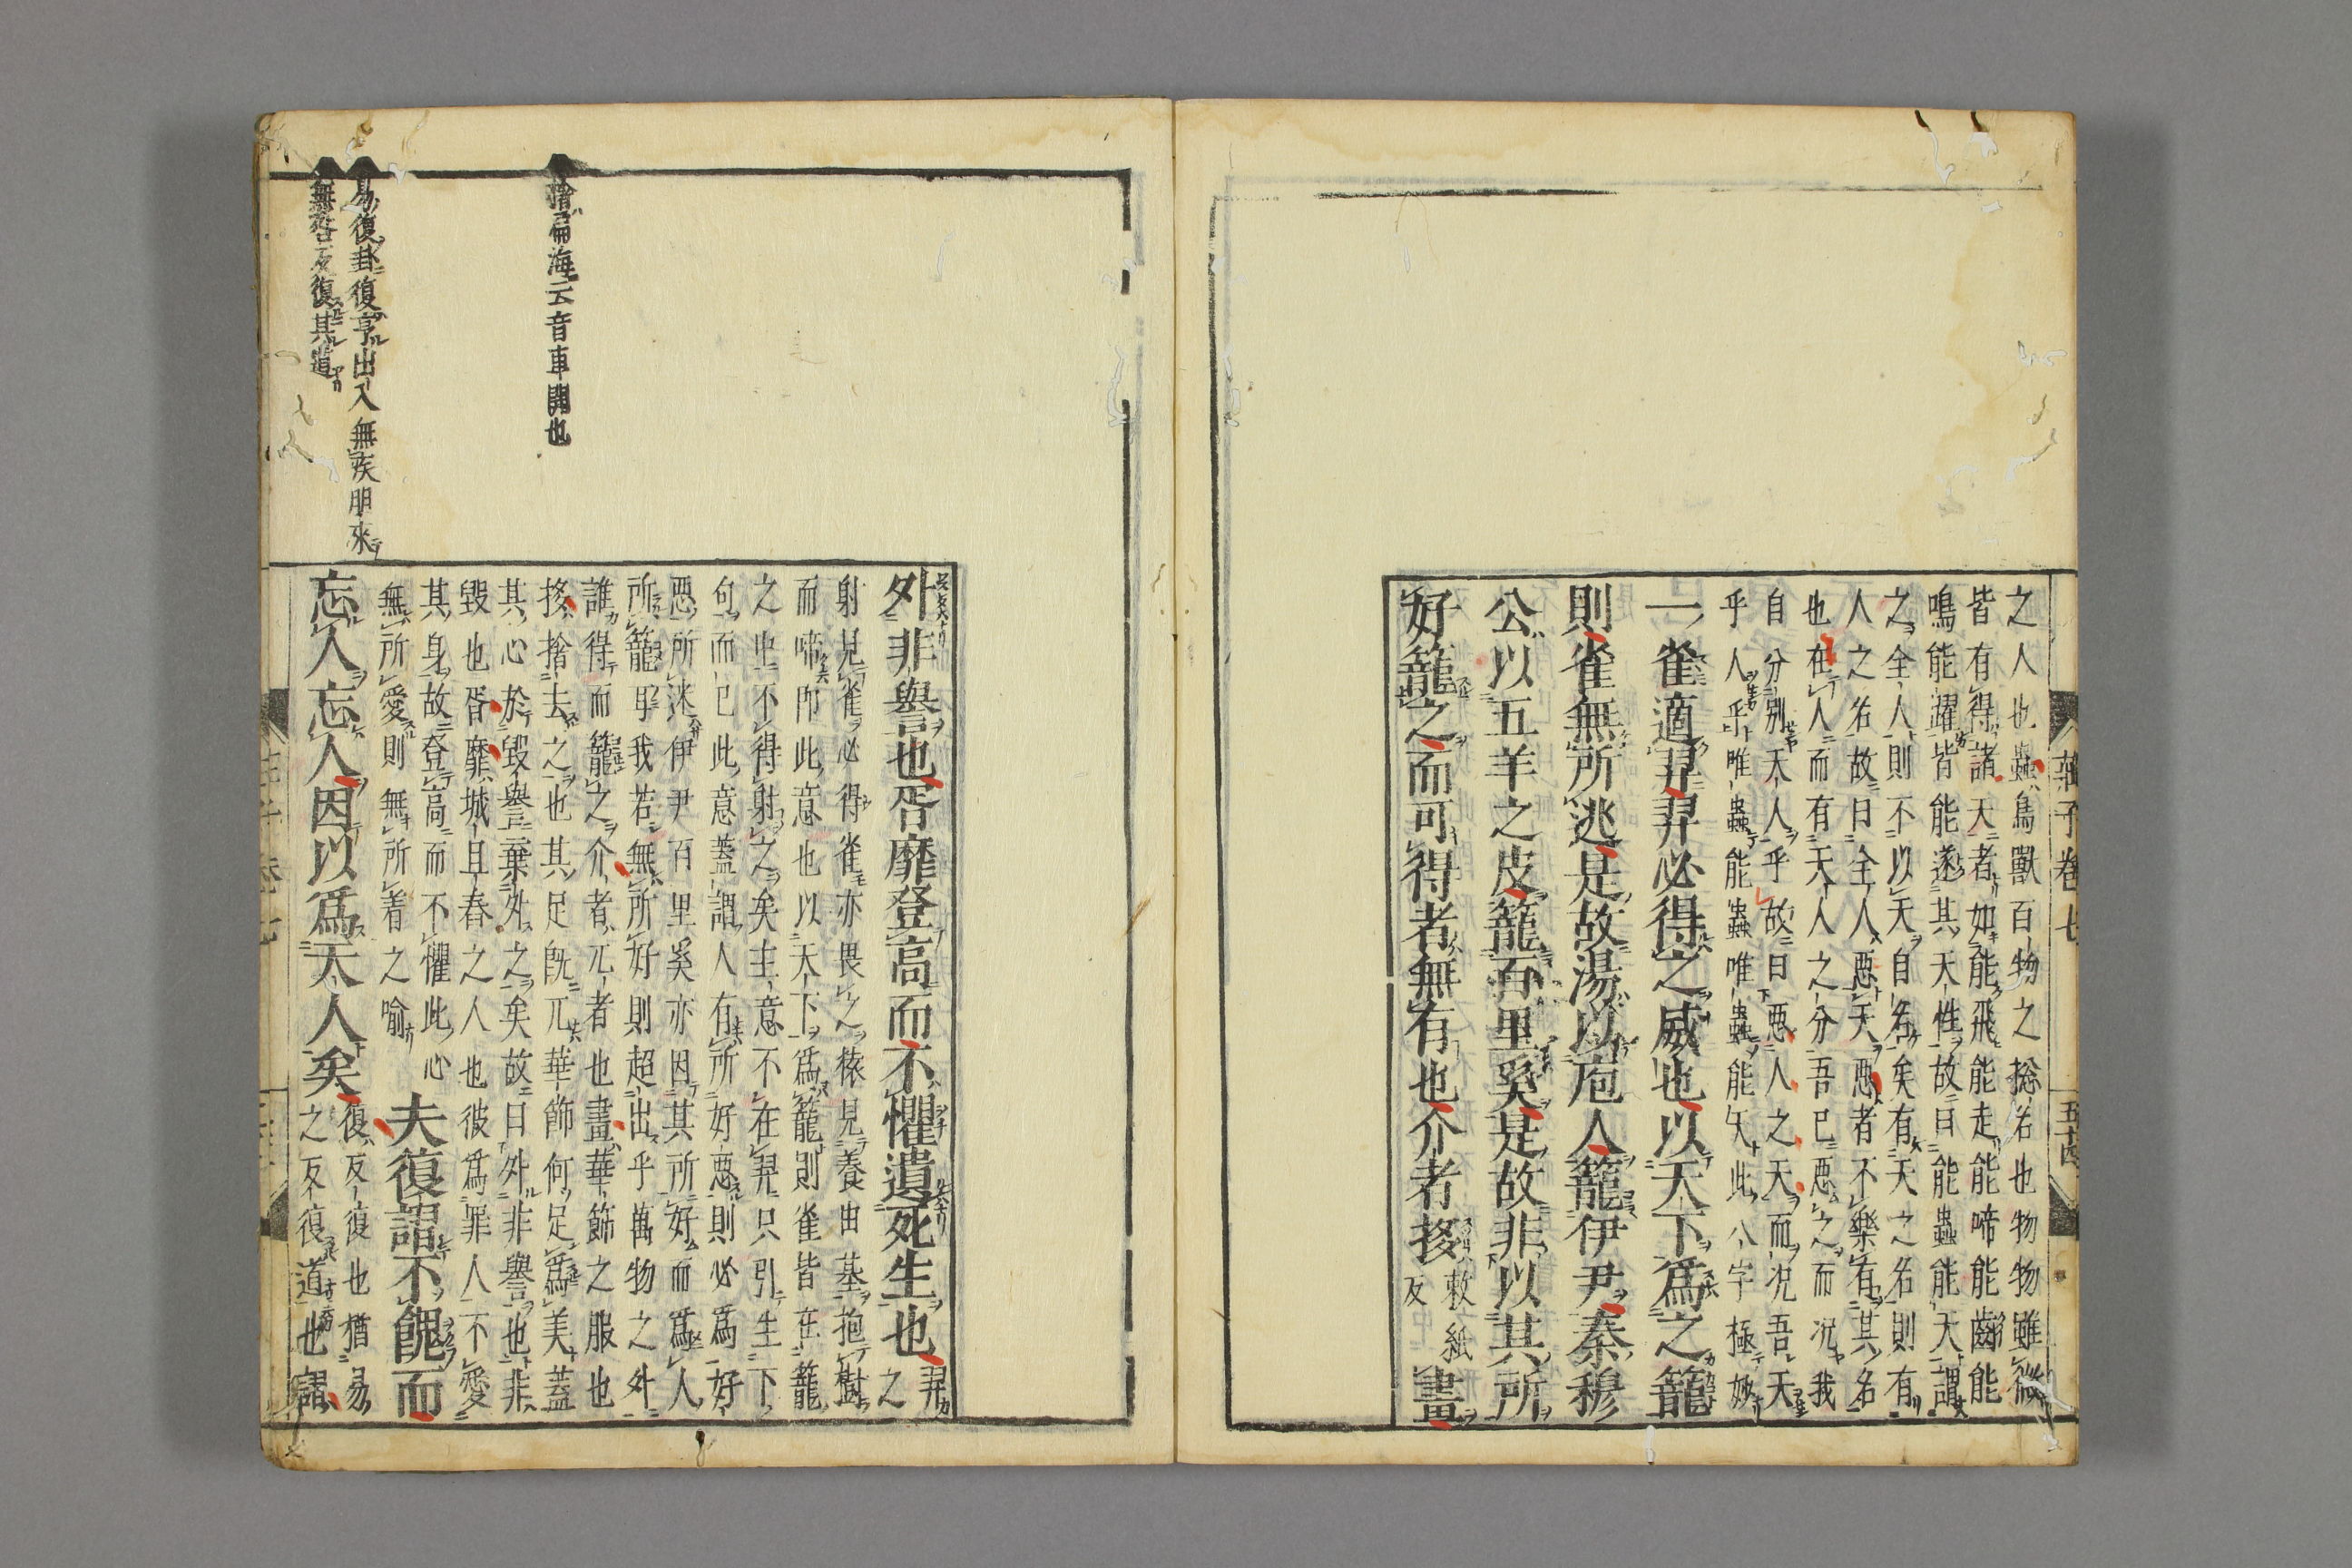 莊子卷七
五十四
之人也蟲鳥獸百物之総名也物物雖微
皆有得諸天者如能飛能走能啼能齧能
鳴能躍皆能遂其天性故曰能蟲能天謂
之全人則不以天自名矣有天之名則有
人之名故曰全人惡天惡者不樂有其名
也在人而有天人之分吾已惡之而况我
自分別天人乎故曰惡人之天而况吾天
乎人乎唯蟲能蟲唯蟲能天此八字極妙
一雀適羿羿必得之威也以天下爲之籠
則雀無所逃是故湯以庖人籠伊尹秦穆
公以五羊之皮籠百里奚是故非以其所
好籠之而可得者無有也介者拸
敕紙
反
畫
外非譽也胥靡登高而不懼遺死生也
羿
之
射見雀必得雀亦畏之猿見養由基抱樹
而啼卽此意也以天下爲籠則雀皆在籠
之中不得射之矣主意不在羿只引生下
句而已此意蓋謂人有所好惡則必爲好
惡所迷伊尹百里奚亦因其所好而爲人
所籠耳我若無所好則超出乎萬物之外
誰得而籠之介者兀者也畫華飾之服也
拸捨去之也其足旣兀華飾何足爲美蓋
其心於毀譽棄外之矣故曰外非譽也非
毀也胥靡城旦舂之人也彼爲罪人不愛
其身故登高而不懼此心
無所愛則無所着之喻
夫復謵不餽而
忘人忘人因以爲天人矣
復反復也猶易
之反復道也謵
拸篇海云音車開也
易復卦復亨出入無疾朋來
無咎反復其道